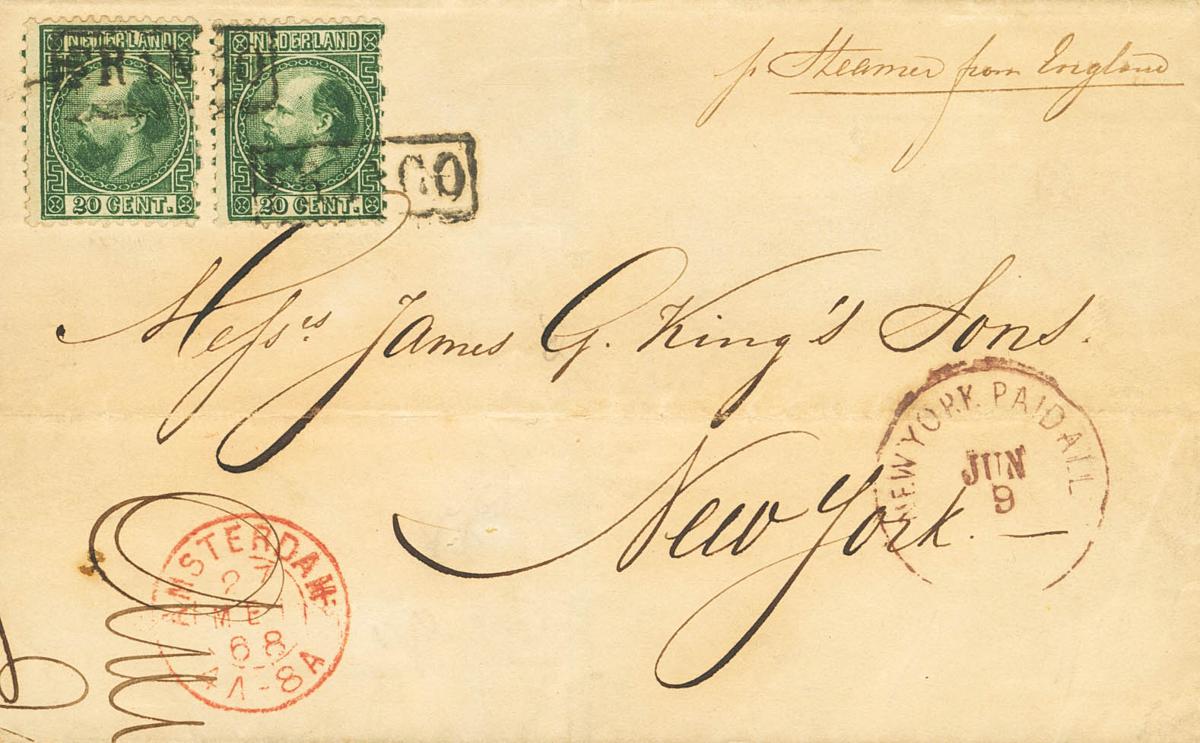 NEDERLAND
20 CENT.
NEDERLAND
20 CENT.
FRANCO
FRANCO
pr Steamer from England
Messrs. James G. King's Sons.
New York. —
NEW YORK PAID ALL
JUN
9
AMSTERDAM
27
MEI
68
4A-8A